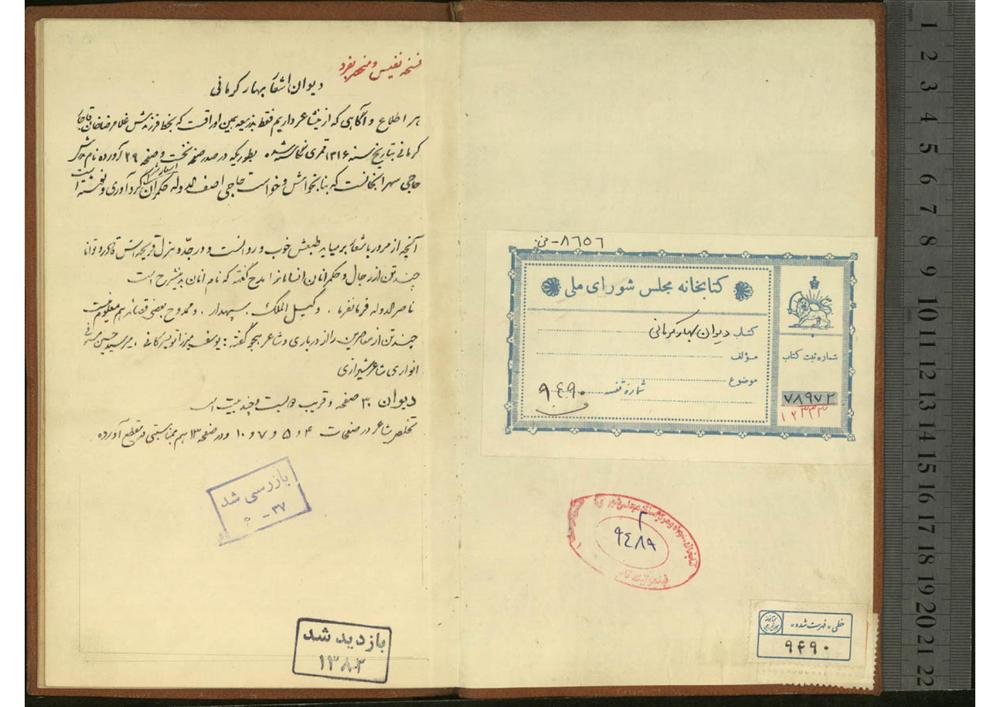 نسخه نفیس و منحصر بفرد
دیوان اشعار بهار کرمانی
هر اطلاع و آگاهی که از این شاعر داریم فقط بوسیله همین اوراقست که بخط فرزندش غلامرضاخان
کرمانی بتاریخ سنه ۱۳۱۶ قمری نگاشته شده بطوریکه در صدر صفحه نخست و صفحه ۲۹ آورده نام
حاجی سهرابخانست که بنا بخواهش و خواست حاجی آصف الدوله حکمران گردآوری و نوشته است
آنچه از مرور باشعار برمیاید طبعش خوب و روانست و در جد و هزل قریحه اش قادر و توانا
چند تن از رجال و حکمرانان آنسامانرا مدح گفته که نام آنان بدینشرح است
ناصرالدوله فرمانفرما ، وکیل الملک ، سپهدار ، و ممدوح بعضی قصائد هم معلوم نیست
چند تن از معاصرین را از درباری و شاعر هجو گفته : یوسف میرزا
انواری شاعر شیرازی
دیوان ۳۰ صفحه و قریب دویست و چند بیت است
تخلص شاعر در صفحات ۴ و ۵ و ۷ و ۱۰ و در صفحه ۱۳ هم بمناسبتی در مقطع آورده
بازرسی شد
۳۷ -
بازدید شد
۱۳۸۲
۸۶۵۶ - ف
کتابخانه مجلس شورای ملی
کتاب دیوان بهار کرمانی
مؤلف
موضوع
شماره قفسه ۹۴۹۰
شماره ثبت کتاب
۷۸۹۷۲
۱۲۳۳۳
۹۴۸۹
خطی - فهرست شده
۹۴۹۰
1
2
3
4
5
6
7
8
9
10
11
12
13
14
15
16
17
18
19
20
21
22